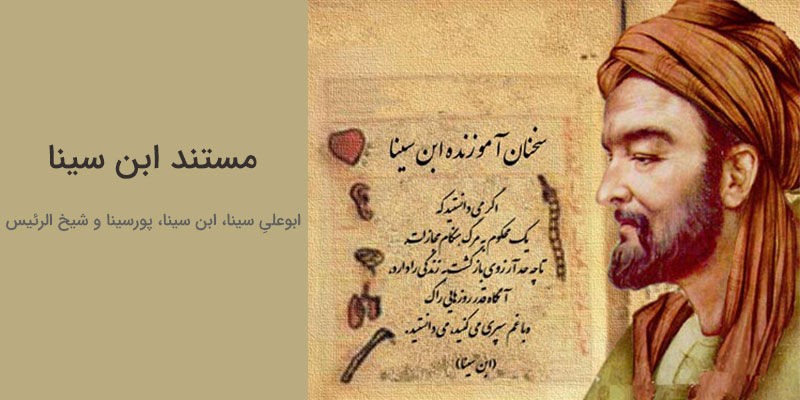 مستند ابن سینا
ابوعلیِ سینا، ابن سینا، پورسینا و شیخ الرئیس
سخنان آموزنده ابن سینا
اگر می دانستید که
یک محکوم به مرگ هنگام مجازات
تا چه حد آرزوی بازگشت به زندگی را دارد،
آنگاه قدر روزهایی را که
با غم سپری می کنید، می دانستید.
(ابن سینا)